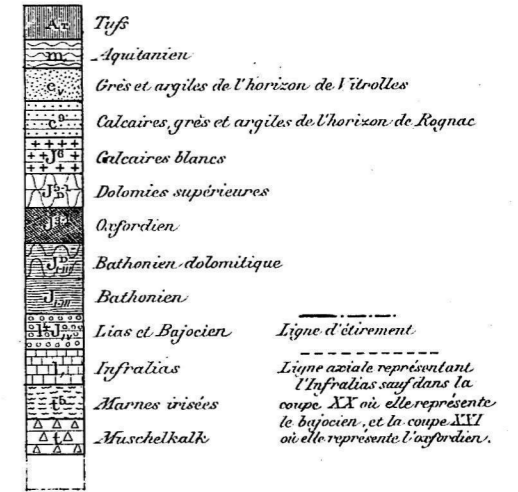 Tufs
m Aquitanien
Grès et argiles de l'horizon de Vitrolles
Calcaires, grès et argiles de l'horizon de Rognac
Calcaires blancs
Dolomies supérieures
Oxfordien
Bathonien dolomitique
Bathonien
Lias et Bajocien
Infralias
Marnes irisées
t Muschelkalk
Ligne d'étirement
Ligne axiale représentant
l'Infralias sauf dans la
coupe XX où elle représente
le bajocien, et la coupe XXI
où elle représente l'oxfordien.